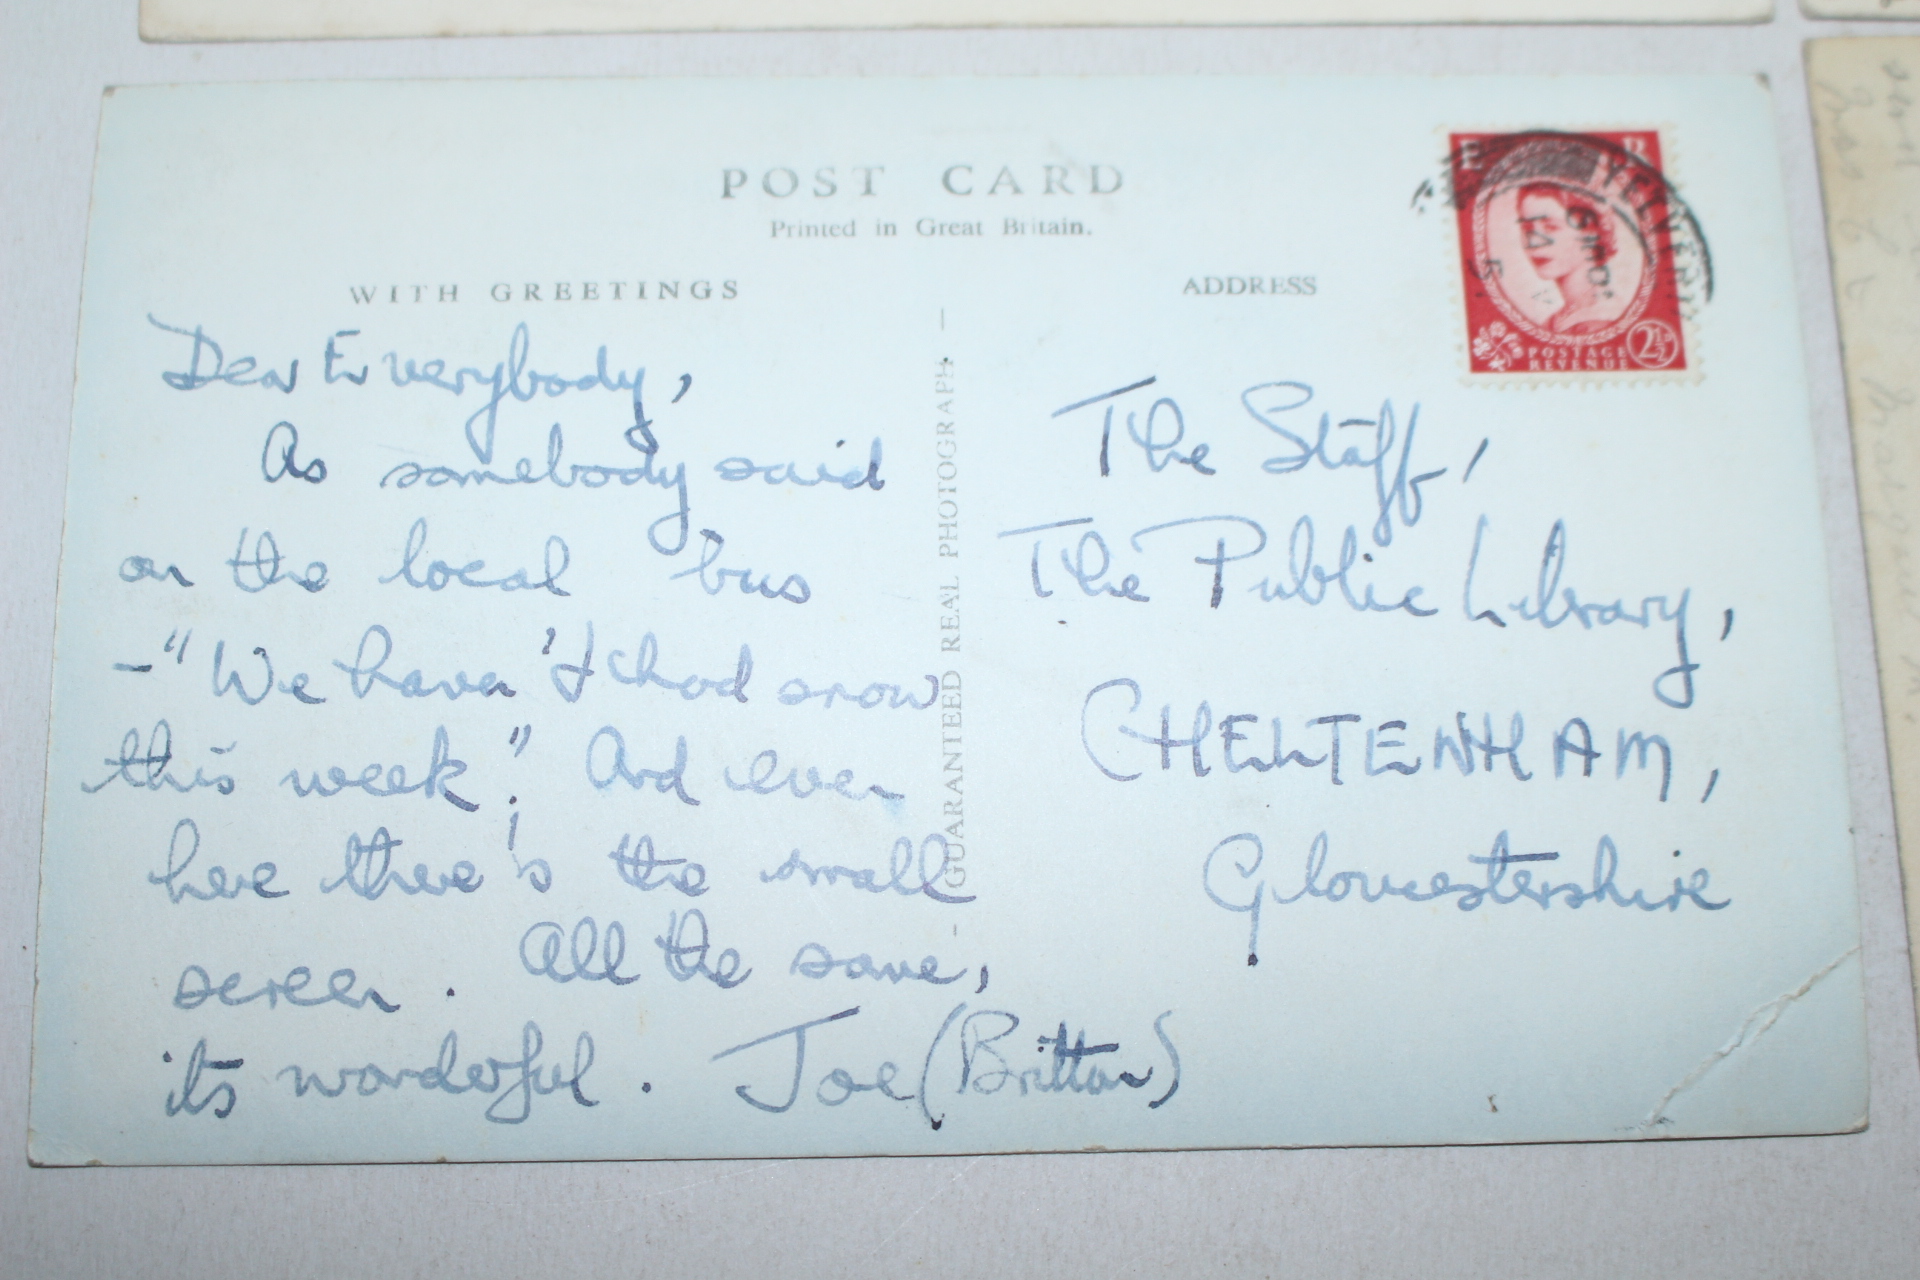 POST CARD
Printed in Great Britain.
WITH GREETINGS
Dear Everybody,
As somebody said
on the local bus
-"We haven't had snow
this week!" And even
here there's the small
screen. All the same,
its wonderful. Joe (Britton)
- GUARANTEED REAL PHOTOGRAPH. -
ADDRESS
The Staff,
The Public Library,
CHELTENHAM,
Gloucestershire
E R
POSTAGE
REVENUE
2½D
YELVER